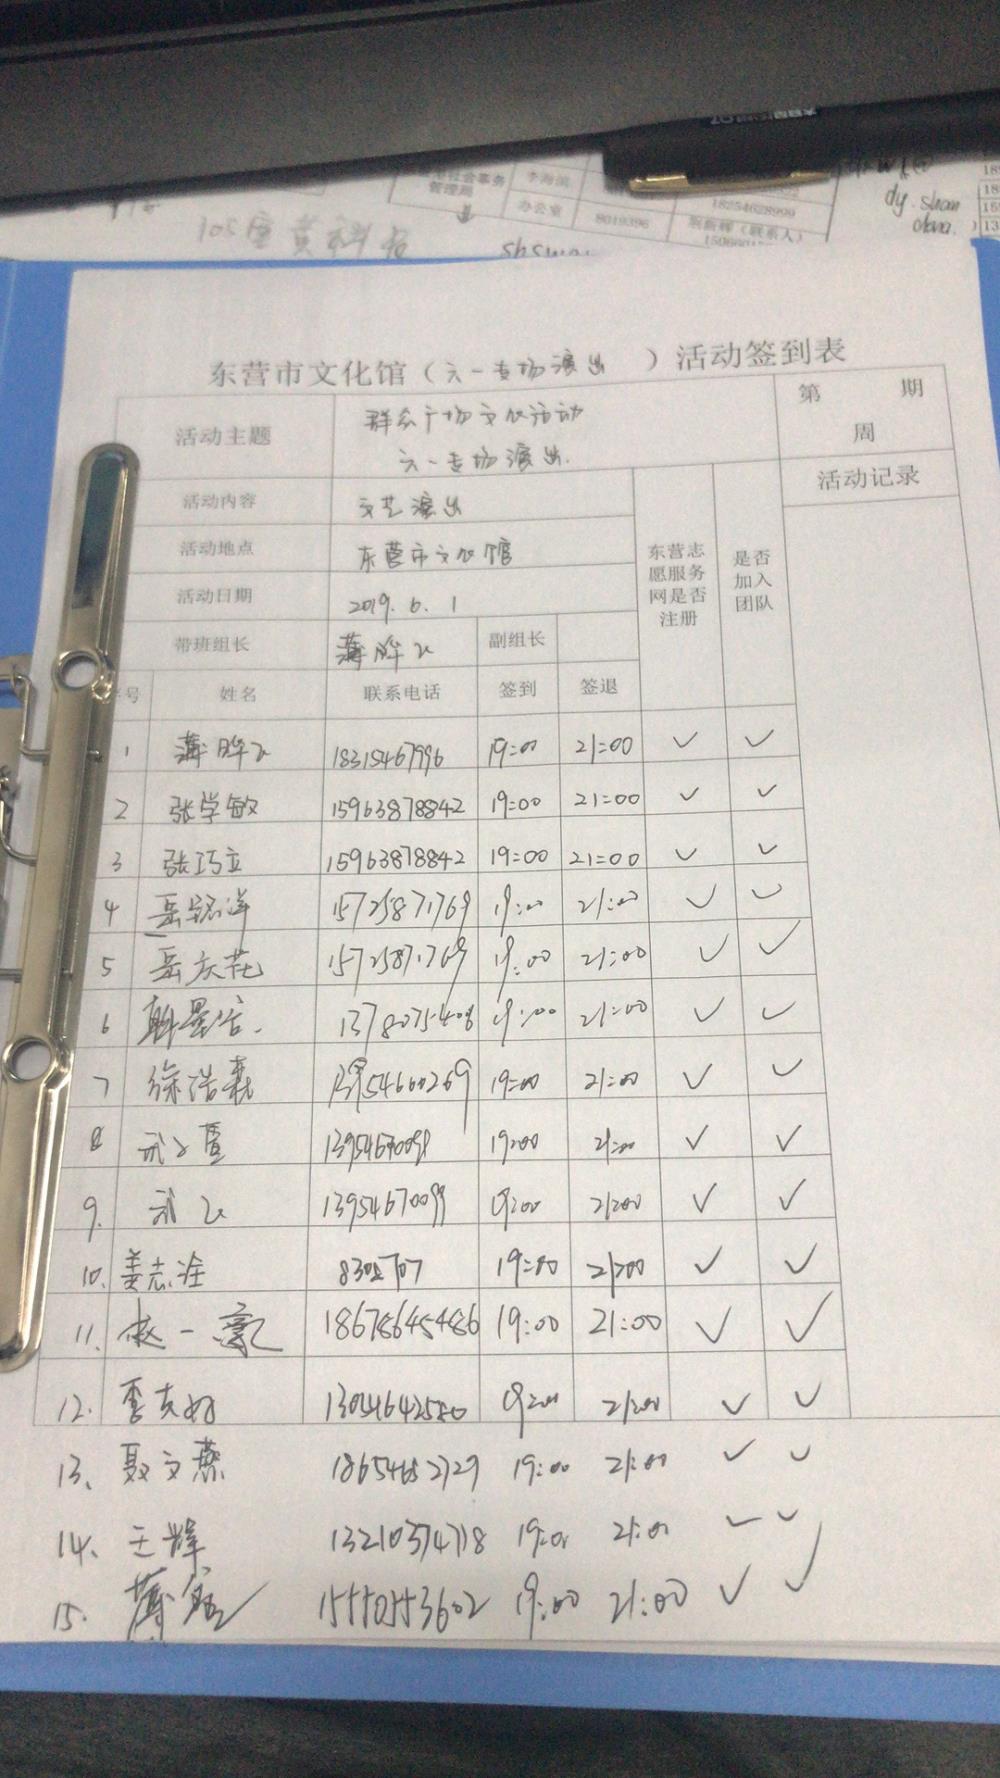 管理局
办公室
8019396
18254628999
dy.shan
东营市文化馆（六一专场演出 ）活动签到表
活动主题 群众广场文化活动 第 期
六一专场演出. 周
活动记录
活动内容 文艺演出
活动地点 东营市文化馆
东营志愿服务网是否注册 是否加入团队
活动日期 2019.6.1
带班组长 副组长
号 姓名 联系电话 签到 签退
1 18315467996 19:00 21:00 ✓ ✓
2 张学敏 15963878842 19:00 21:00 ✓ ✓
3 张巧立 15963878842 19:00 21:00 ✓ ✓
4 岳铭洋 15725871769 19:00 21:00 ✓ ✓
5 岳庆花 15725871769 19:00 21:00 ✓ ✓
6 19:00 21:00 ✓ ✓
7 徐浩森 19:00 21:00 ✓ ✓
8 19:00 21:00 ✓ ✓
9. 13954670099 19:00 21:00 ✓ ✓
10. 姜志淦 19:00 21:00 ✓ ✓
11. 赵一豪 18678645486 19:00 21:00 ✓ ✓
12. 李克好 19:00 21:00 ✓ ✓
13. 聂文燕 19:00 21:00 ✓ ✓
14. 王辉 13210374718 19:00 21:00 ✓ ✓
15. 15550553602 19:00 21:00 ✓ ✓